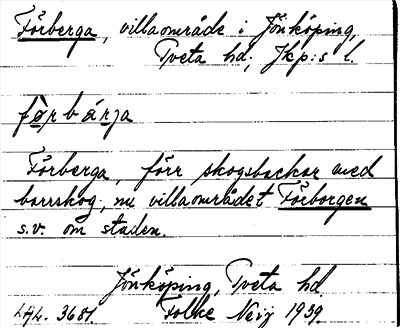 Förberga, villaområde i Jönköping,
Tveta hd; Jkp:s l.
førbärja
Förberga, förr skogsbackar med
barrskog, nu villaområdet Förborgen
s.v. om staden.
Jönköping, Tveta hd
LAL. 3681. Folke Neij 1939